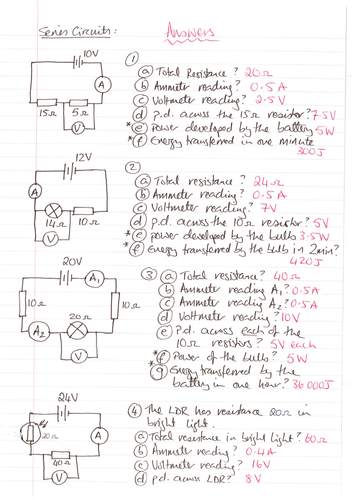 Series Circuits: Answers
10V
A
15Ω 5Ω
V
①
ⓐ Total Resistance? 20Ω
ⓑ Ammeter reading? 0.5A
ⓒ Voltmeter reading? 2.5V
ⓓ P.d. across the 15Ω resistor? 7.5V
*ⓔ Power developed by the battery 5W
*ⓕ Energy transferred in one minute
300J
12V
A
14Ω 10Ω
V
②
ⓐ Total resistance? 24Ω
ⓑ Ammeter reading? 0.5A
ⓒ Voltmeter reading? 7V
ⓓ P.d. across the 10Ω resistor? 5V
*ⓔ power developed by the bulb? 3.5W
*ⓕ Energy transferred by the bulb in 2min?
420J
20V
A₁
10Ω 10Ω
20Ω
A₂
V
③ ⓐ Total resistance? 40Ω
ⓑ Ammeter reading A₁? 0.5A
ⓒ Ammeter reading A₂? 0.5A
ⓓ Voltmeter reading? 10V
ⓔ P.d. across each of the
10Ω resistors? 5V each
*ⓕ Power of the bulb? 5W
*ⓖ Energy transferred by the
battery in one hour? 36000J
24V
20Ω
A
40Ω
V
④ The LDR has resistance 20Ω in
bright light.
ⓐ Total resistance in bright light? 60Ω
ⓑ Ammeter reading? 0.4A
ⓒ Voltmeter reading? 16V
ⓓ p.d. across LDR? 8V